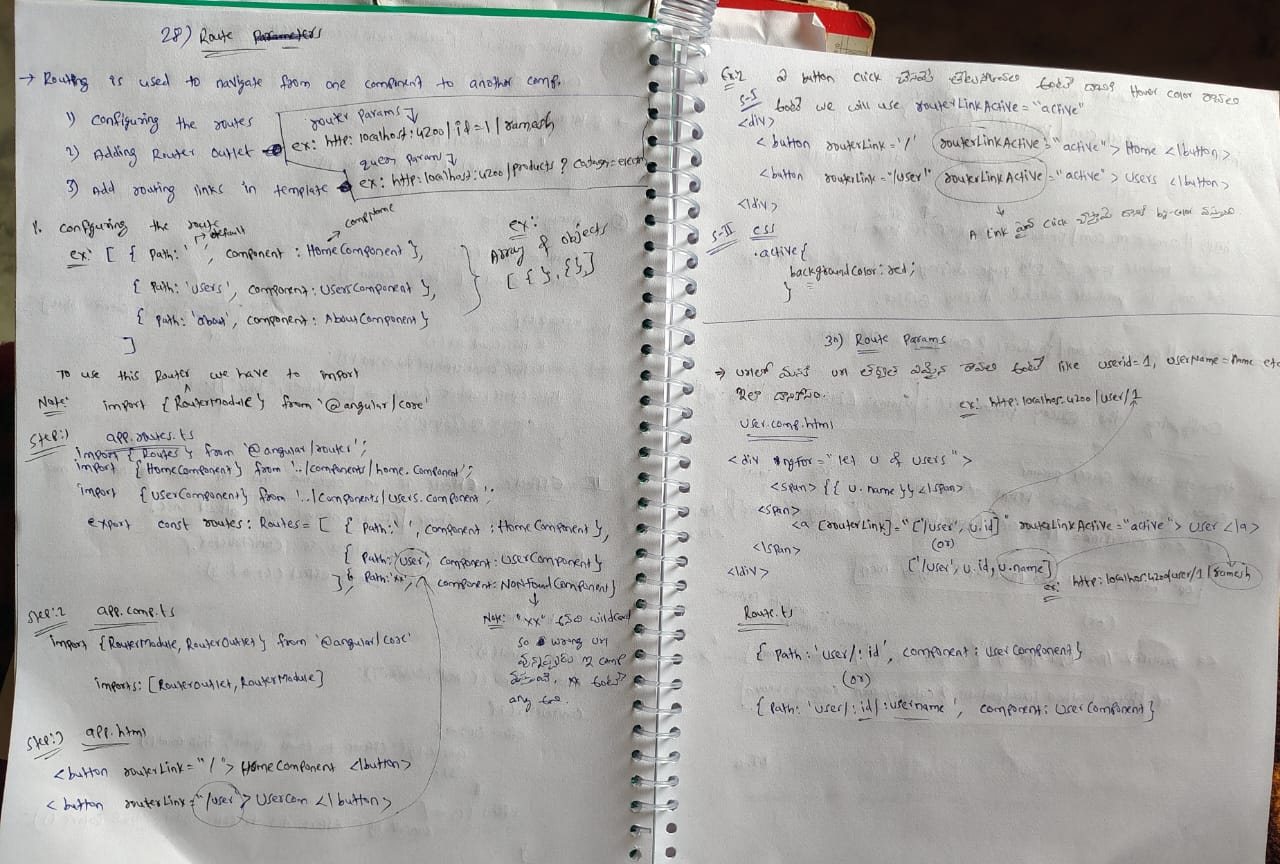 28) Route Parameters
→ Routing is used to navigate from one component to another comp.
1) Configuring the routes
2) Adding Router Outlet
3) Add routing links in template
router params ↓
ex: http: localhost:4200/id=1/ramesh
query params ↓
ex: http: localhost:4200/products?
1. configuring the route
default
compName
ex: [ { Path: ' ', component : HomeComponent },
{ Path: 'users', component: UsersComponent },
{ Path: 'about', component: AboutComponent }
]
ex:
Array of objects
[ { }, { } ]
To use this Router we have to import
Note: import { RouterModule } from '@angular/core'
Step:1) app.routes.ts
import { Routes } from '@angular/router';
import { HomeComponent } from '../components/home.component';
import { UserComponent } from '../components/users.component';
export const routes: Routes = [ { Path: ' ', component : HomeComponent },
{ Path: 'user', component: UserComponent }
{ Path: '**', component: NotFoundComponent }
]
Note: "**" wildcard
so wrong url
comp
**
any
Step:2 app.comp.ts
import { RouterModule, RouterOutlet } from '@angular/core'
imports: [RouterOutlet, RouterModule]
Step:3 app.html
<button routerLink = "/" > HomeComponent </button>
<button routerLink = "/user" > UserCom </button>
Ex:2 button click Hover color
S-I అంటే we will use routerLinkActive = "active"
<div>
<button routerLink = '/' routerLinkActive = "active" > Home </button>
<button routerLink = "/user" routerLinkActive = "active" > Users </button>
</div>
A link click bg-color
S-II css
.active {
backgroundColor: red;
}
30) Route Params
→ url అంటే like userid=1, userName=
ex: http: localhos:4200/user/1
User.comp.html
<div *ngfor = "let u of users" >
<span> {{ u.name }} </span>
<span>
<a [routerLink] = "['/user', u.id]" routerLinkActive = "active" > User </a>
(or)
</span>
['/user', u.id, u.name]
</div>
ex: http: localhos:4200/user/1/ramesh
Route.ts
{ Path: 'user/:id', component: UserComponent }
(or)
{ Path: 'user/:id/:username', component: UserComponent }